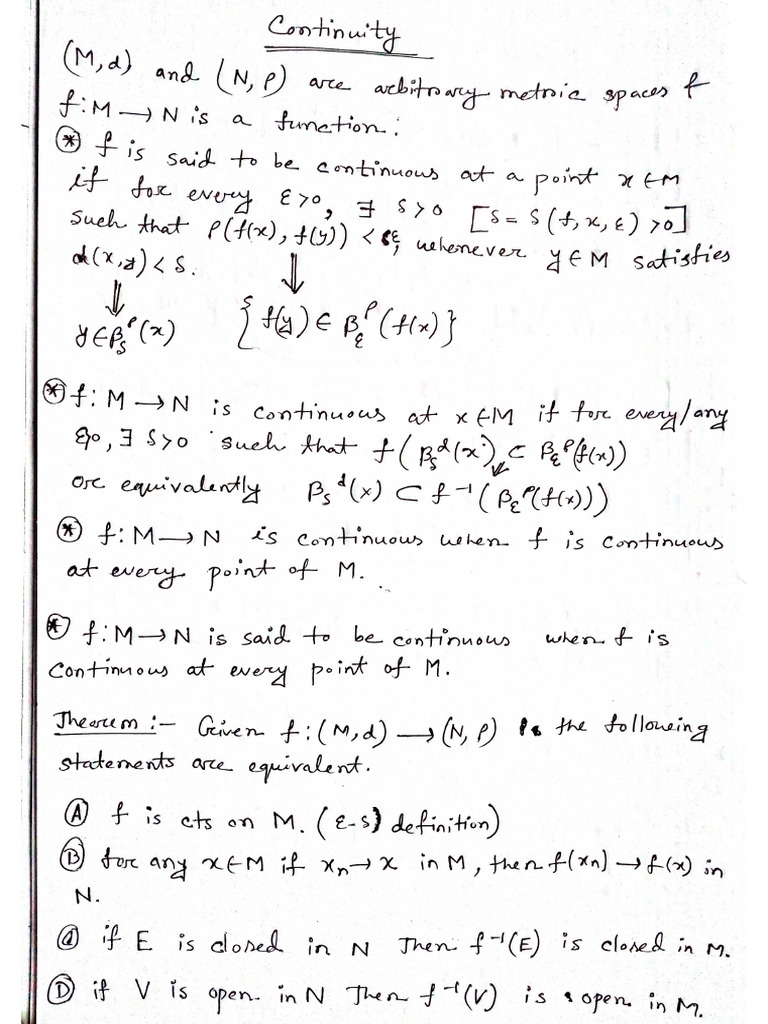 Continuity
(M,d) and (N, ρ) are arbitrary metric spaces &
f: M → N is a function:
⊛ f is said to be continuous at a point x ∈ M
if for every ε>0, ∃ δ>0 [δ = δ(f, x, ε) >0]
such that ρ(f(x), f(y)) < ε, whenever y ∈ M satisfies
d(x,y) < δ.
⇓ ⇓
y ∈ B_δ^ρ(x) { f(y) ∈ B_ε^ρ(f(x) }
⊛ f: M → N is continuous at x ∈ M if for every/any
ε>0, ∃ δ>0 such that f(B_δ^d(x) ⊂ B_ε^ρ(f(x))
or equivalently B_δ^d(x) ⊂ f⁻¹(B_ε^ρ(f(x)))
⊛ f: M → N is continuous when f is continuous
at every point of M.
⊛ f: M → N is said to be continuous when f is
continuous at every point of M.
Theorem :- Given f: (M,d) → (N, ρ) the following
statements are equivalent.
Ⓐ f is cts on M. (ε-δ) definition)
Ⓑ for any x ∈ M if xₙ → x in M, then f(xₙ) → f(x) in
N.
if E is closed in N Then f⁻¹(E) is closed in M.
Ⓓ if V is open in N Then f⁻¹(V) is open in M.